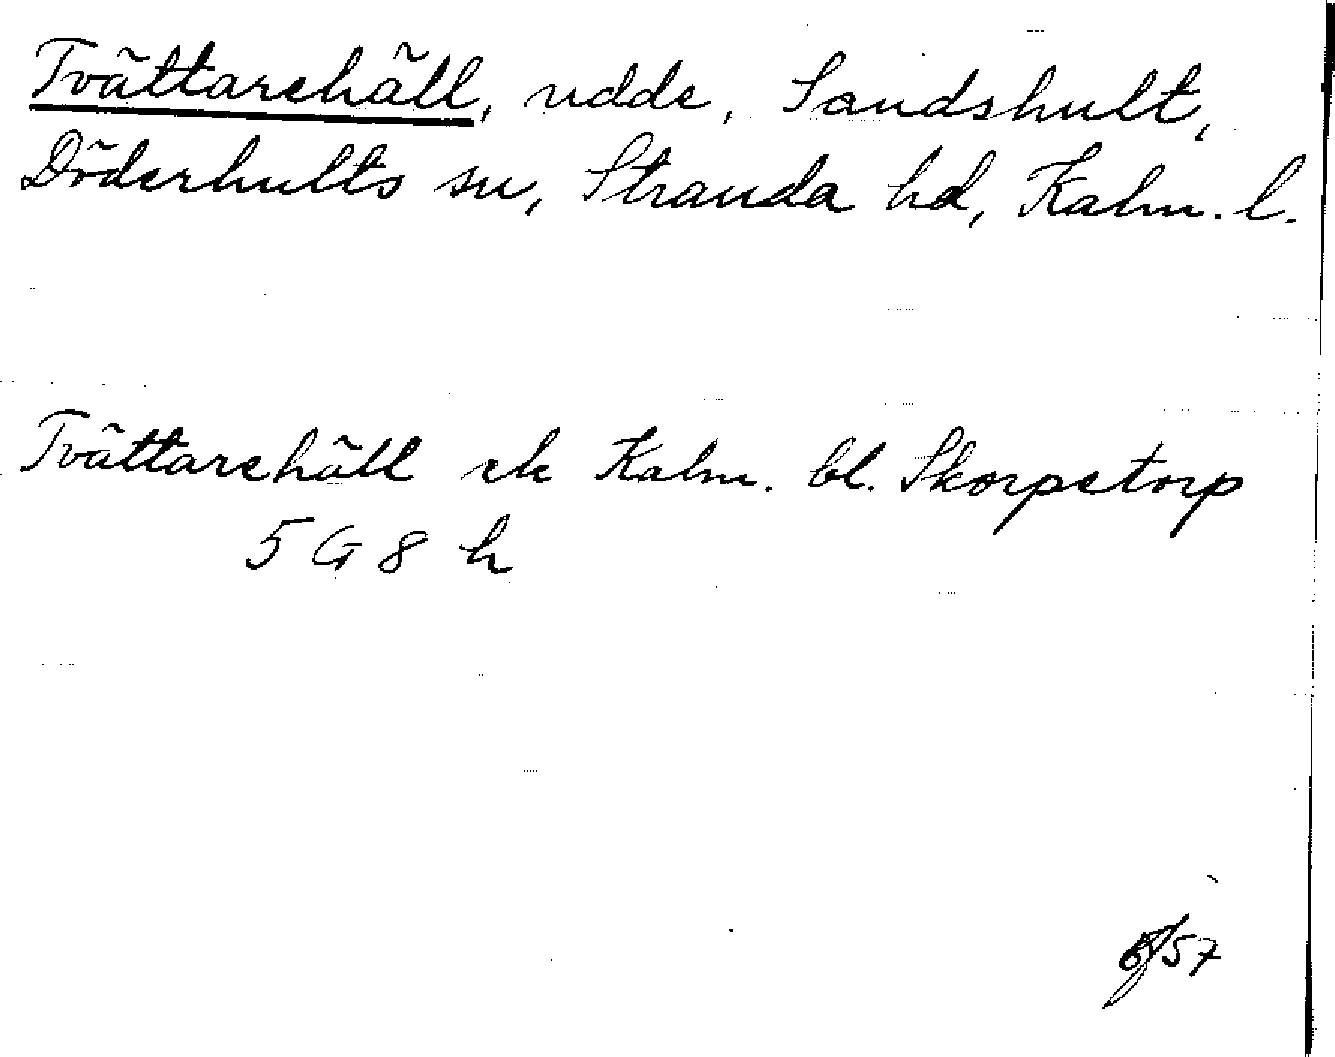 Tvättarehäll, udde, Sandshult,
Döderhults sn, Stranda hd, Kalm. l.
Tvättarehäll ek Kalm. bl. Skorpetorp
5 G 8 h
57